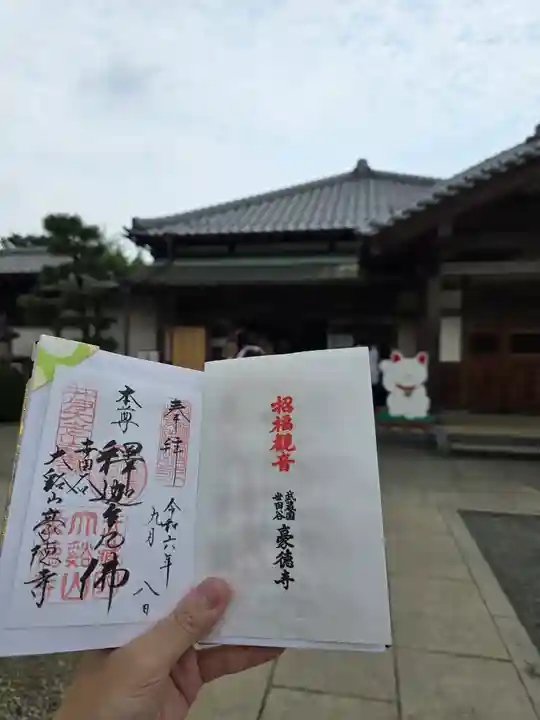 招福観音
武蔵国
世田谷
豪徳寺
奉拝
令和六年
九月
八日
本尊
釋迦牟尼佛
世田谷
大谿山豪徳寺
大谿山